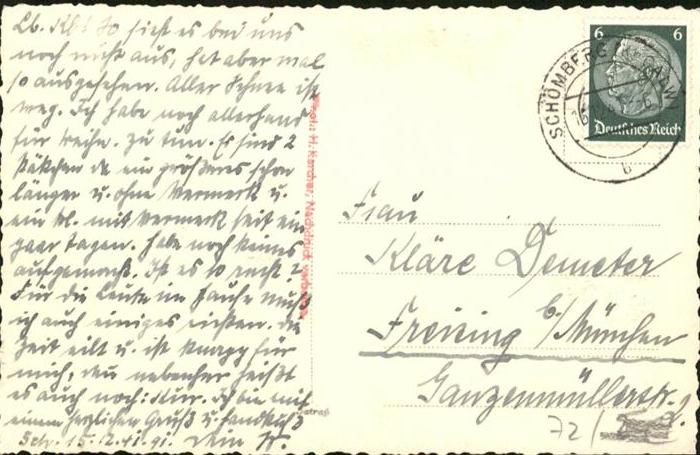 Lb. Kl.! So sieht es bei uns
noch nicht aus, hat aber mal
so ausgesehen. Aller Schnee ist
weg. Ich habe noch allerhand
für Weihn. zu tun. Es sind 2
Päckchen da ein größeres schon
länger u. ohne Vermerk u.
ein kl. mit Vermerk seit ein
paar Tagen. Habe noch keines
aufgemacht. Ist es so recht?
Für die Leute im Hause muß
ich auch einiges richten. Die
Zeit eilt u. ist knapp für
mich, denn nebenher heißt
es auch noch: Kur. Ich bin mit
einem herzlichen Gruß u.
15.12.41. Dein
Phot.: H. Karcher, Nachdruck verboten
SCHÖMBERG
b
6 6
Deutsches Reich
Frau
Kläre Demeter
Freising b/München
Ganzenmüllerstr.
72/